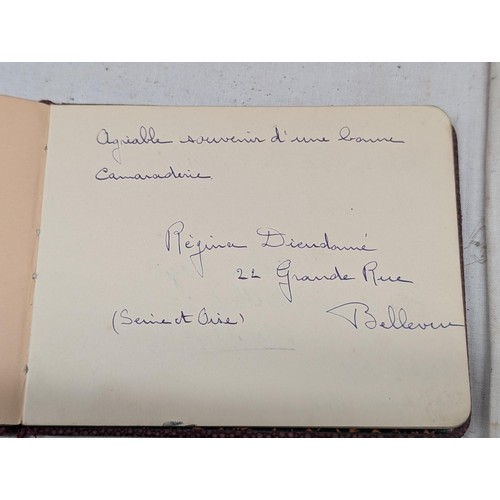 Agréable souvenir d'une bonne
Camaraderie.
Régina Dieudonné
21 Grande Rue
(Seine et Oise) Bellevue